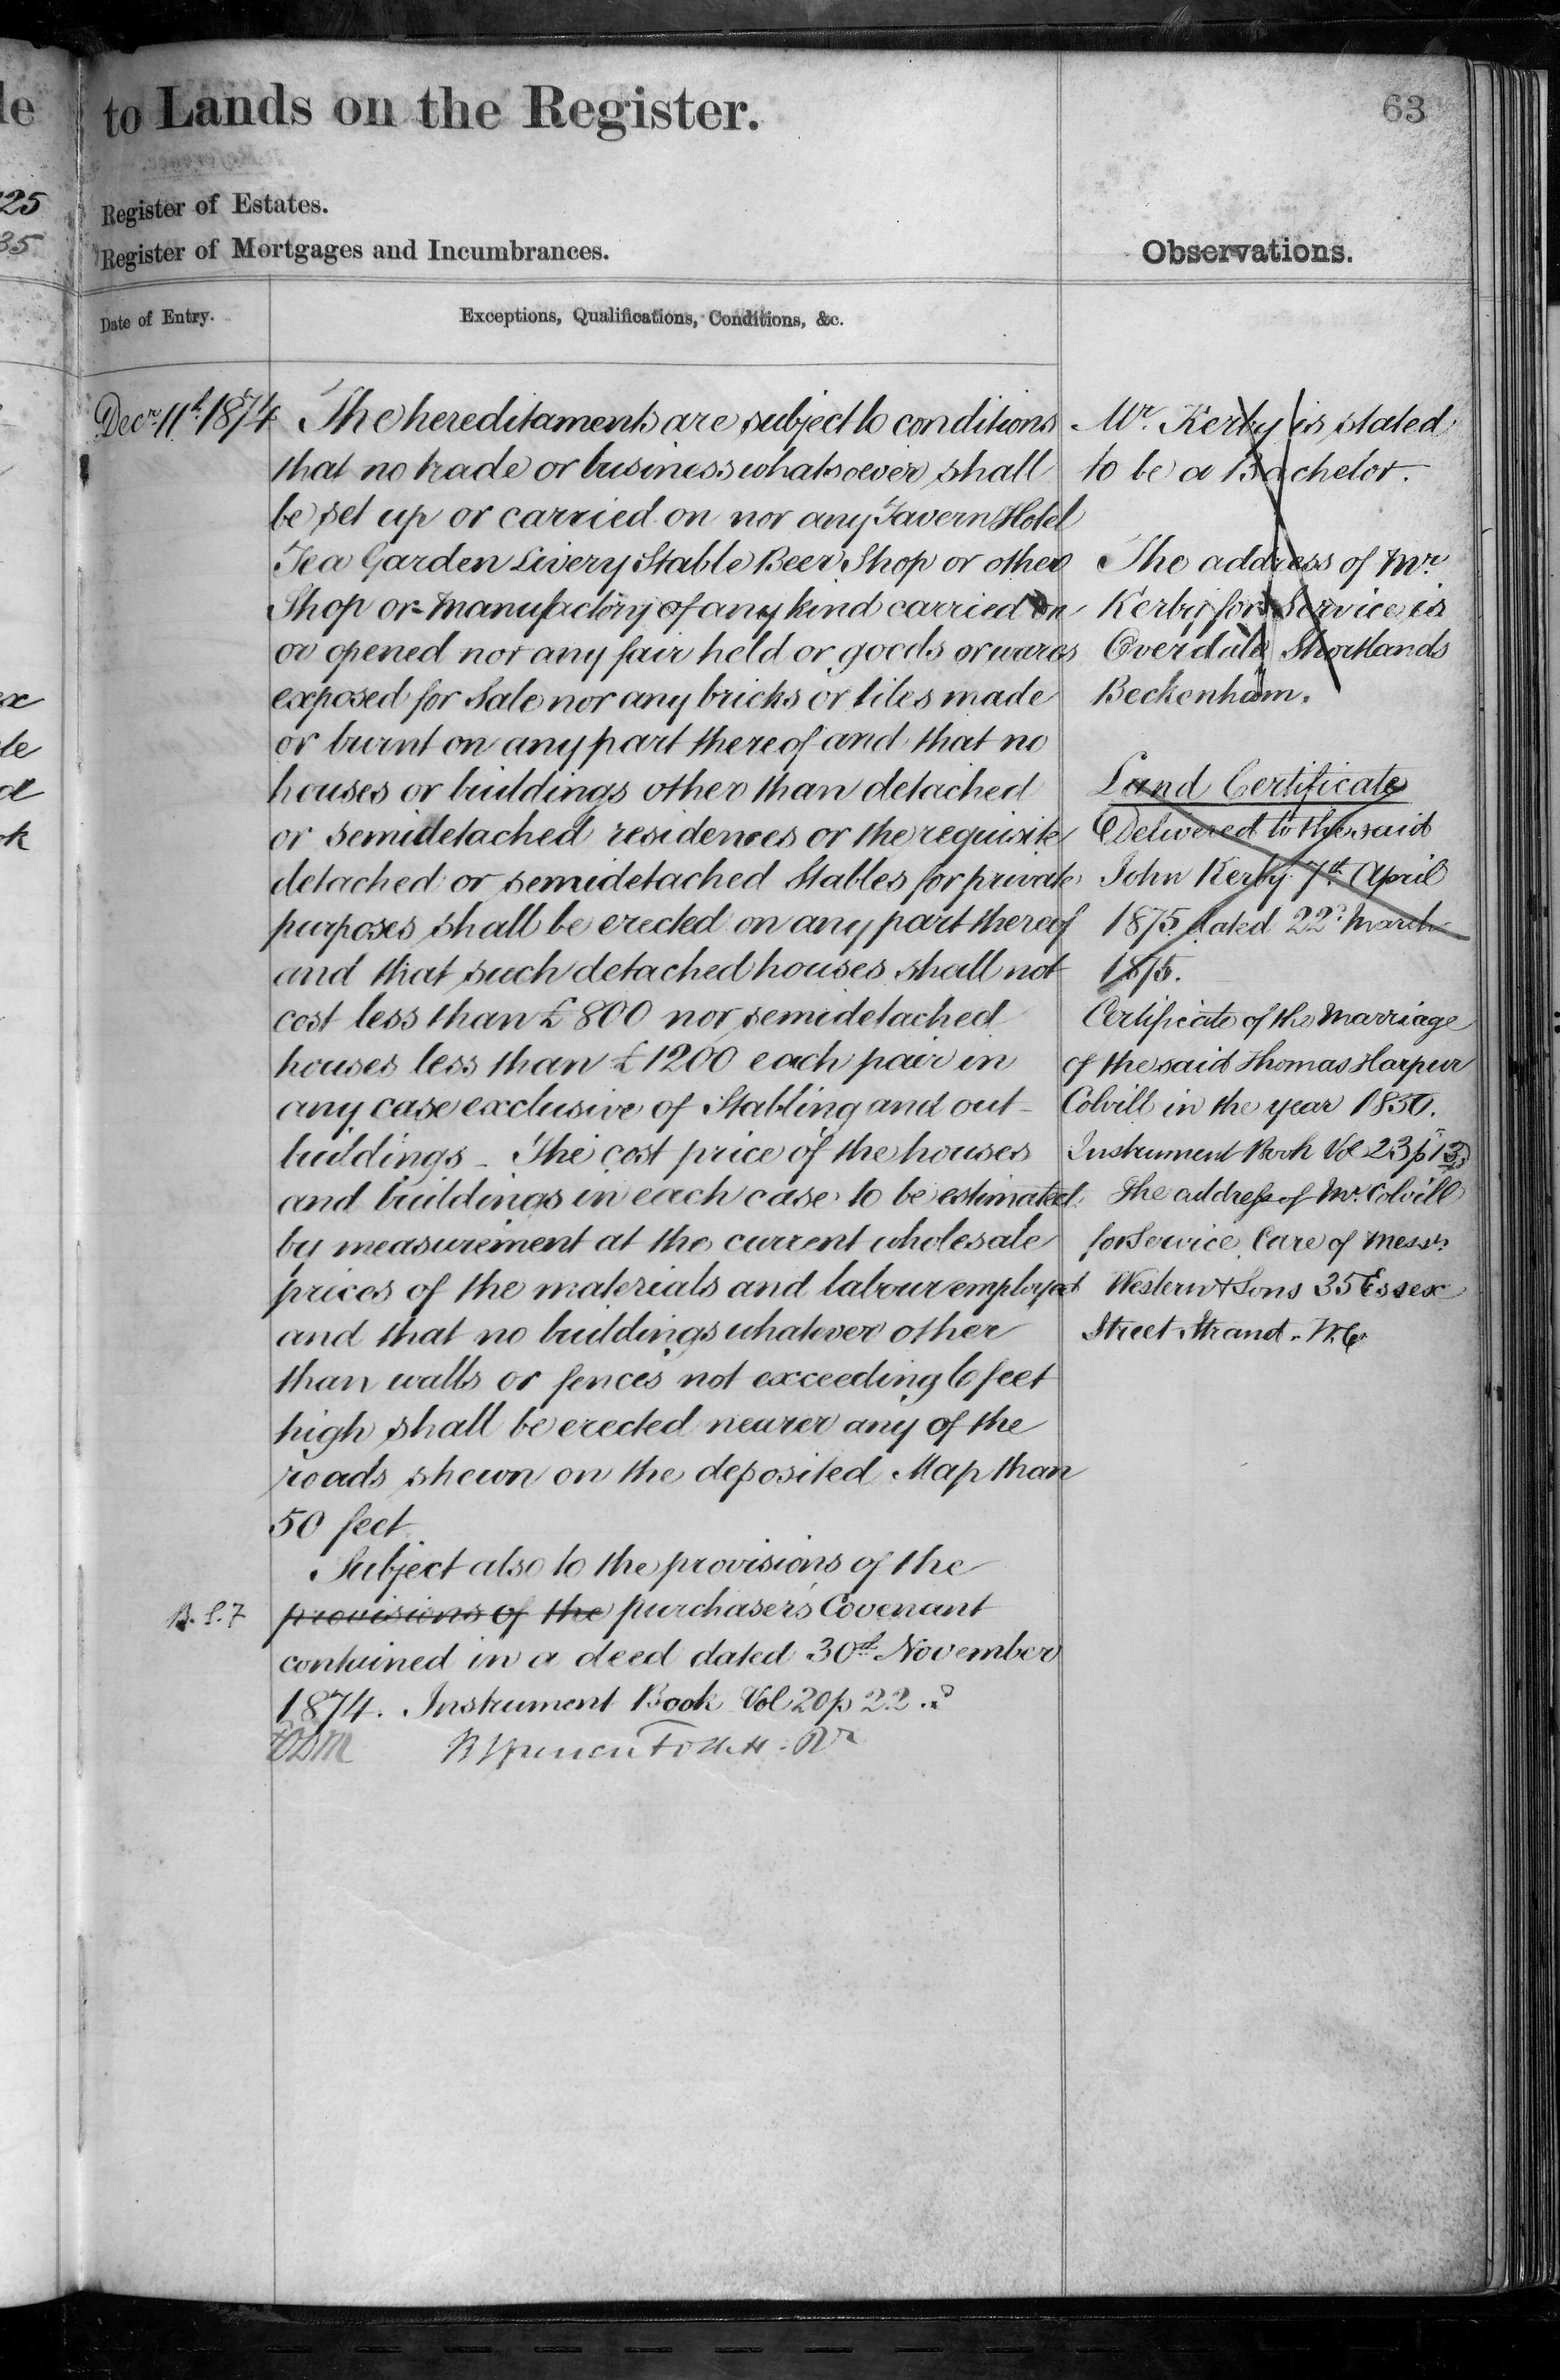 to Lands on the Register.
63
Register of Estates.
Register of Mortgages and Incumbrances.
Observations.
Date of Entry.
Exceptions, Qualifications, Conditions, &c.
Decr 11th 1874
The hereditaments are subject to conditions
that no trade or business whatsoever shall
be set up or carried on nor any Tavern Hotel
Tea Garden Livery Stable Beer Shop or other
Shop or manufactory of any kind carried on
or opened nor any fair held or goods or wares
exposed for Sale nor any bricks or tiles made
or burnt on any part thereof and that no
houses or buildings other than detached
or semidetached residences or the requisite
detached or semidetached Stables for private
purposes shall be erected on any part thereof
and that such detached houses shall not
cost less than £800 nor semidetached
houses less than £1200 each pair in
any case exclusive of Stabling and out-
buildings - The cost price of the houses
and buildings in each case to be estimated
by measurement at the current wholesale
prices of the materials and labour employed
and that no buildings whatever other
than walls or fences not exceeding 6 feet
high shall be erected nearer any of the
roads shewn on the deposited Map than
50 feet
Subject also to the provisions of the
provisions of the purchaser's Covenant
contained in a deed dated 30th November
1874. Instrument Book Vol 20 p 22
Mr. Kerby is stated
to be a Bachelor.
The address of Mr
Kerby for Service is
Overdale Shortlands
Beckenham.
Land Certificate
Delivered to the said
John Kerby 7th April
1875 dated 22d March
1875.
Certificate of the Marriage
of the said Thomas Harpur
Colvill in the year 1850.
Instrument Book Vol 23 p 13
The address of Mr. Colvill
for Service Care of Messrs
Western & Sons 35 Essex
Street Strand. W.C.